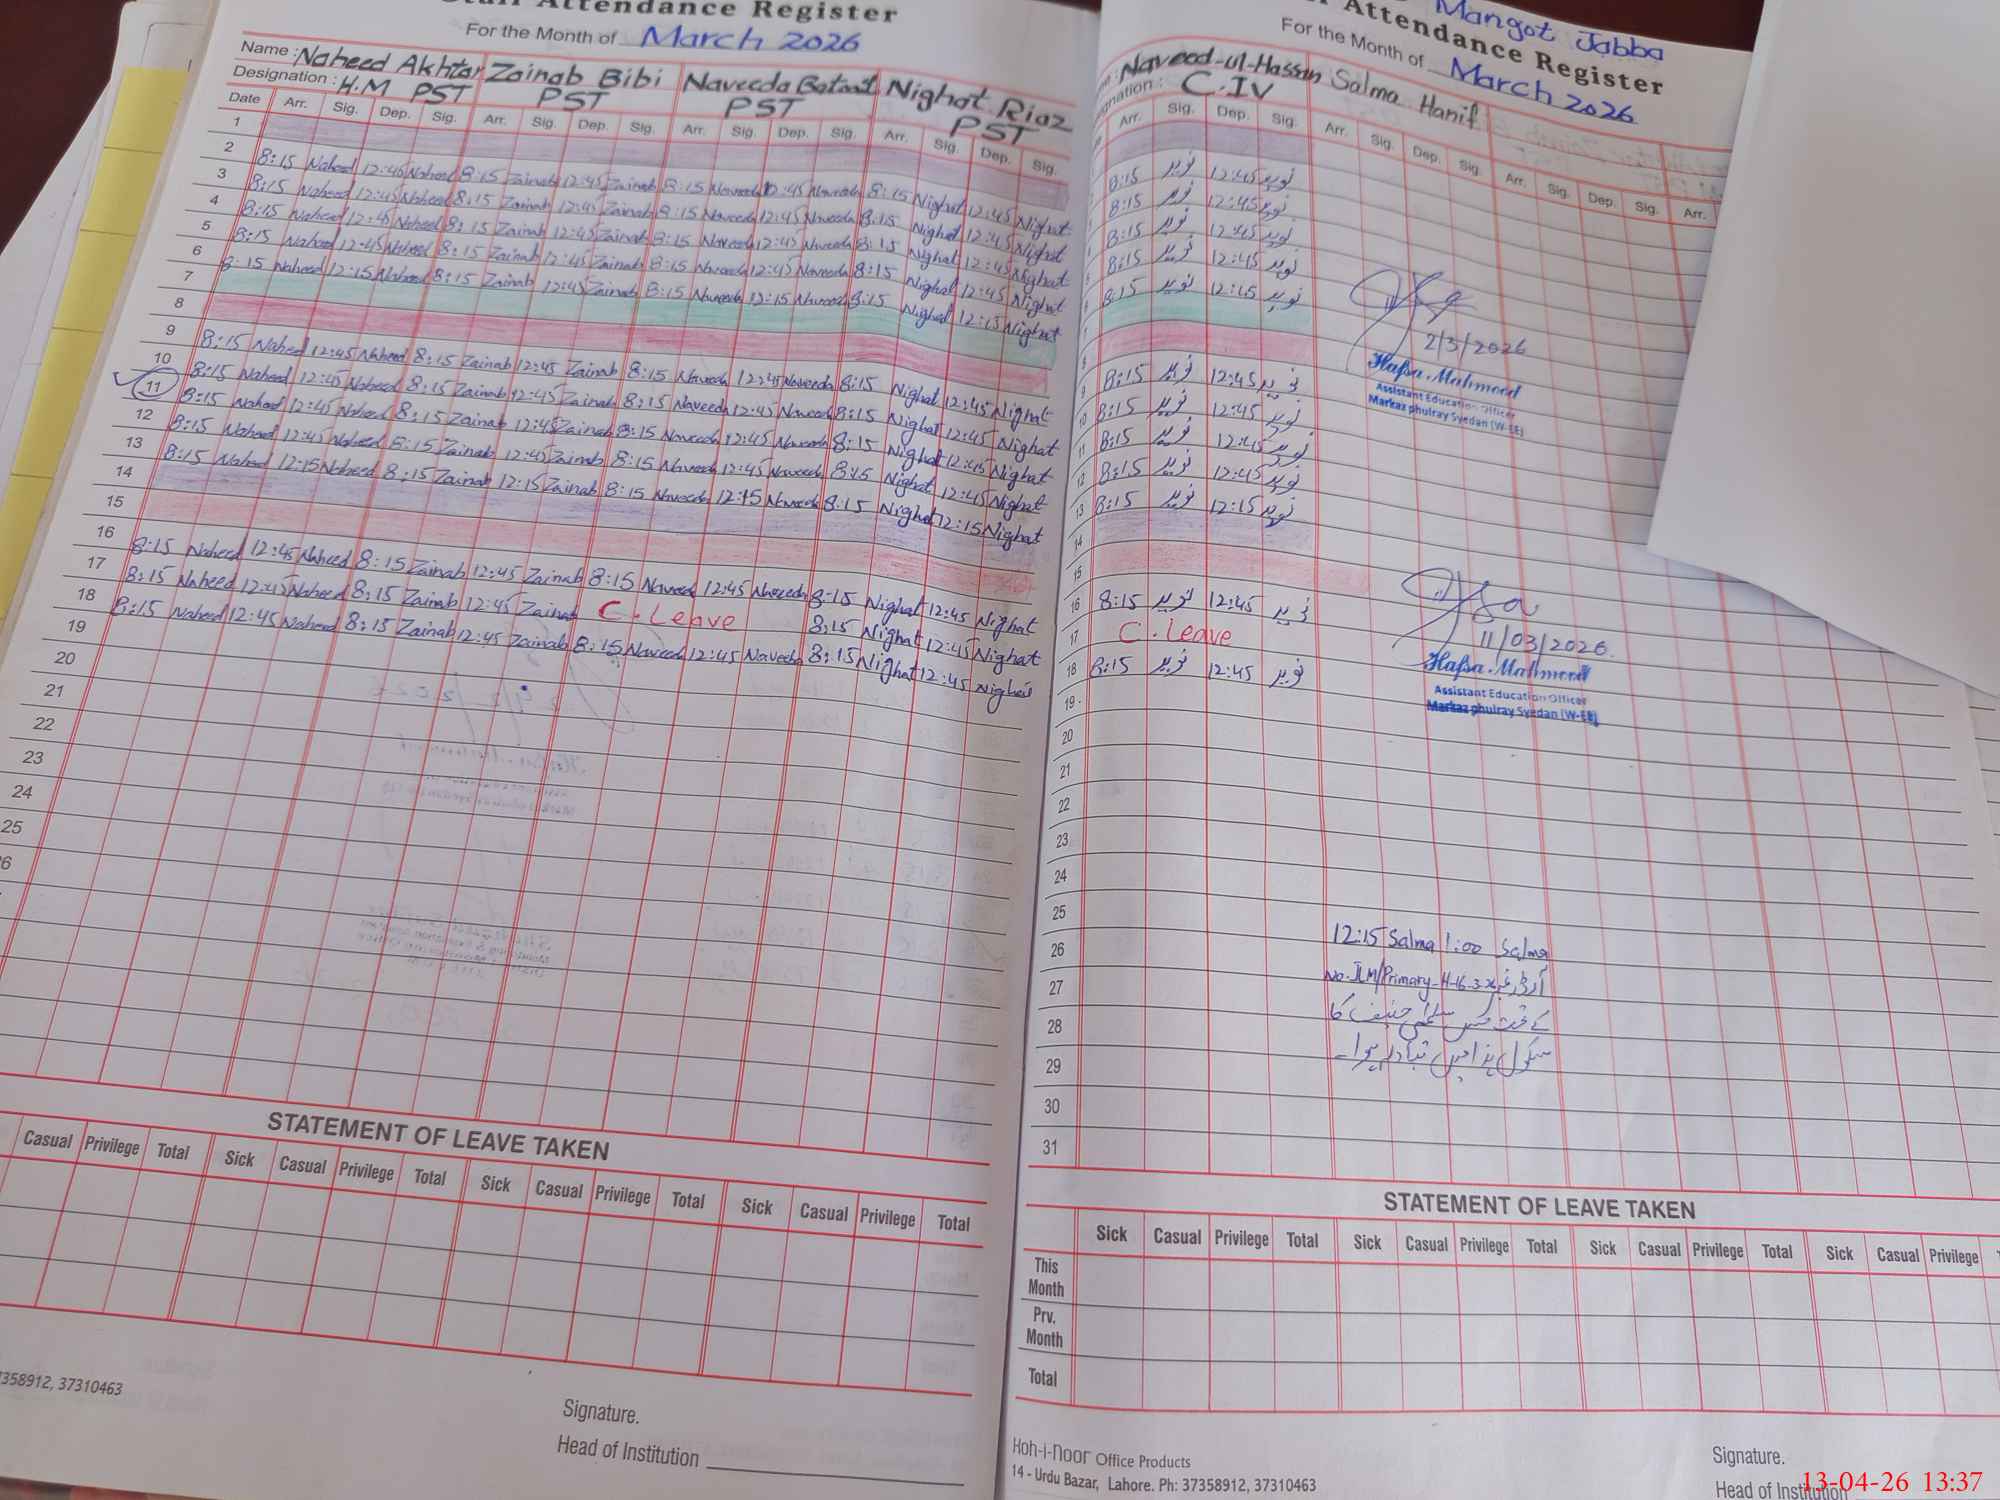 Staff Attendance Register
For the Month of March 2026
Name : Naheed Akhtar Zainab Bibi Naveeda Batool Nighat Riaz
Designation : H.M PST PST PST PST
Date Arr. Sig. Dep. Sig. Arr. Sig. Dep. Sig. Arr. Sig. Dep. Sig. Arr. Sig. Dep. Sig.
1
2 8:15 Naheed 12:45 Naheed 8:15 Zainab 12:45 Zainab 8:15 Naveeda 12:45 Naveeda 8:15 Nighat 12:45 Nighat
3 8:15 Naheed 12:45 Naheed 8:15 Zainab 12:45 Zainab 8:15 Naveeda 12:45 Naveeda 8:15 Nighat 12:45 Nighat
4 8:15 Naheed 12:45 Naheed 8:15 Zainab 12:45 Zainab 8:15 Naveeda 12:45 Naveeda 8:15 Nighat 12:45 Nighat
5 8:15 Naheed 12:45 Naheed 8:15 Zainab 12:45 Zainab 8:15 Naveeda 12:45 Naveeda 8:15 Nighat 12:45 Nighat
6 8:15 Naheed 12:15 Naheed 8:15 Zainab 12:45 Zainab 8:15 Naveeda 12:15 Naveeda 8:15 Nighat 12:15 Nighat
7
8
9 8:15 Naheed 12:45 Naheed 8:15 Zainab 12:45 Zainab 8:15 Naveeda 12:45 Naveeda 8:15 Nighat 12:45 Nighat
10 8:15 Naheed 12:45 Naheed 8:15 Zainab 12:45 Zainab 8:15 Naveeda 12:45 Naveeda 8:15 Nighat 12:45 Nighat
11 8:15 Naheed 12:45 Naheed 8:15 Zainab 12:45 Zainab 8:15 Naveeda 12:45 Naveeda 8:15 Nighat 12:45 Nighat
12 8:15 Naheed 12:45 Naheed 8:15 Zainab 12:45 Zainab 8:15 Naveeda 12:45 Naveeda 8:15 Nighat 12:45 Nighat
13 8:15 Naheed 12:15 Naheed 8:15 Zainab 12:15 Zainab 8:15 Naveeda 12:15 Naveeda 8:15 Nighat 12:15 Nighat
14
15
16 8:15 Naheed 12:45 Naheed 8:15 Zainab 12:45 Zainab 8:15 Naveeda 12:45 Naveeda 8:15 Nighat 12:45 Nighat
17 8:15 Naheed 12:45 Naheed 8:15 Zainab 12:45 Zainab C. Leave 8:15 Nighat 12:45 Nighat
18 8:15 Naheed 12:45 Naheed 8:15 Zainab 12:45 Zainab 8:15 Naveeda 12:45 Naveeda 8:15 Nighat 12:45 Nighat
19
20
21
22
23
24
25
STATEMENT OF LEAVE TAKEN
Casual Privilege Total Sick Casual Privilege Total Sick Casual Privilege Total Sick Casual Privilege Total
7358912, 37310463
Signature.
Head of Institution
Mangot Jabba
Attendance Register
For the Month of March 2026
Naveed-ul-Hassan Salma Hanif
C.IV
Arr. Sig. Dep. Sig. Arr. Sig. Dep. Sig. Arr. Sig. Dep. Sig. Arr.
8:15 نوید 12:45 نوید
8:15 نوید 12:45 نوید
8:15 نوید 12:45 نوید
8:15 نوید 12:45 نوید
8:15 نوید 12:45 نوید
2/3/2026
Hafsa Mahmood
Assistant Education Officer
Markaz phulray Syedan (W-EE)
8
9 8:15 نوید 12:45 نوید
10 8:15 نوید 12:45 نوید
11 8:15 نوید 12:45 نوید
12 8:15 نوید 12:45 نوید
13 8:15 نوید 12:15 نوید
14
15
16 8:15 نوید 12:45 نوید
17 C. Leave
18 8:15 نوید 12:45 نوید
11/03/2026
Hafsa Mahmood
Assistant Education Officer
Markaz phulray Syedan (W-EE)
19
20
21
22
23
24
25
26 12:15 Salma 1:00 Salma
27 آرڈر نمبر No. JLM/Primary-4-16-3-26
28 کے تحت مس سلمیٰ حنیف کا
29 سکول ہذا میں تبادلہ ہوا۔
30
31
STATEMENT OF LEAVE TAKEN
Sick Casual Privilege Total Sick Casual Privilege Total Sick Casual Privilege Total Sick Casual Privilege
This Month
Prv. Month
Total
Koh-i-Noor Office Products
14 - Urdu Bazar, Lahore. Ph: 37358912, 37310463
Signature.
Head of Institution
13-04-26 13:37